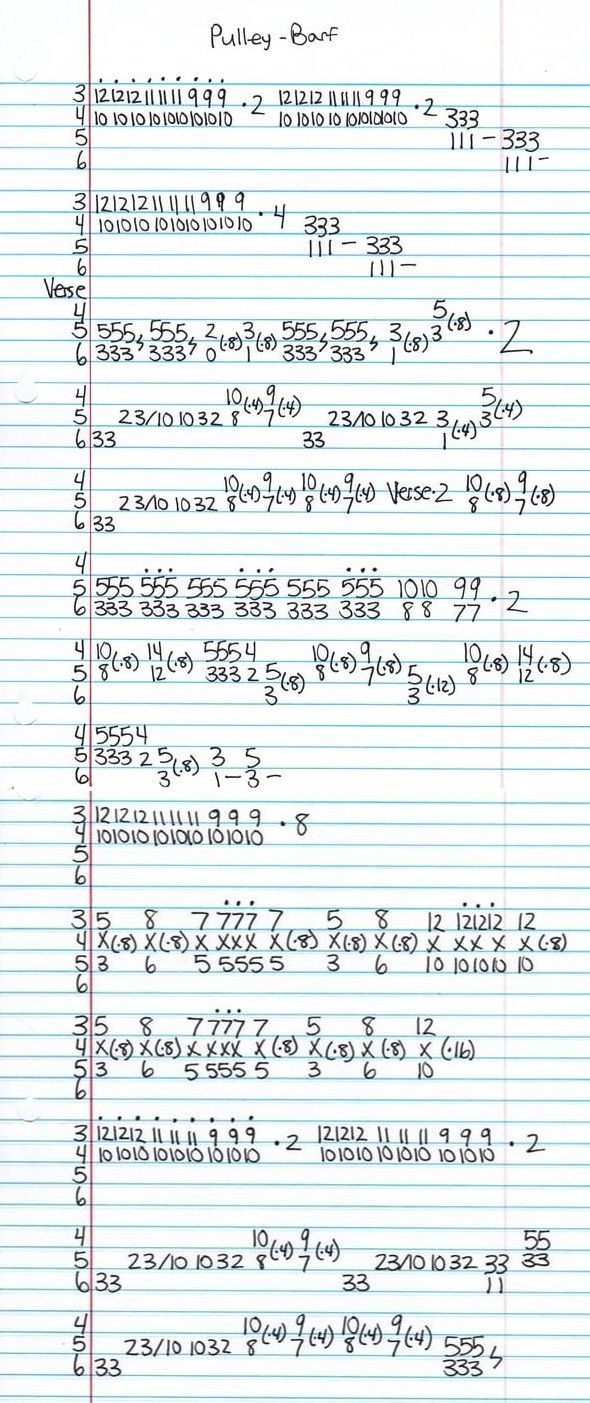 Pulley-Barf
. . . . . . . . .
3 12 12 12 11 11 11 9 9 9 · 2 12 12 12 11 11 11 9 9 9 · 2
4 10 10 10 10 10 10 10 10 10 10 10 10 10 10 10 10 10 10 333
5 111 – 333
6 111 –
3 12 12 12 11 11 11 9 9 9 · 4
4 10 10 10 10 10 10 10 10 10 333
5 111 – 333
6 111 –
Verse
4 5
5 555, 555, 2(·8) 3(·8) 555, 555, 3(·8) 3(·8) · 2
6 333 333 0 1 333 333 1
4 10(·4) 9(·4) 5(·4)
5 23/10 10 32 8 7 23/10 10 32 3(·4) 3
6 33 33 1
4 10(·4) 9(·4) 10(·4) 9(·4) Verse·2 10(·8) 9(·8)
5 23/10 10 32 8 7 8 7 8 7
6 33
4 ... ... ...
5 555 555 555 555 555 555 10 10 99 · 2
6 333 333 333 333 333 333 8 8 77
4 10(·8) 14(·8) 5554 10(·8) 9(·8) 10(·8) 14(·8)
5 8 12 333 2 5(·8) 8 7 5(·12) 8 12
6 3 3
4 5554
5 333 2 5(·8) 3 5
6 3 1 – 3 –
3 12 12 12 11 11 11 9 9 9 · 8
4 10 10 10 10 10 10 10 10 10
5
6
...  ...
3 5 8 7 777 7 5 8 12 12 12 12 12
4 X(·8) X(·8) X XXX X(·8) X(·8) X(·8) X XX X X(·8)
5 3 6 5 555 5 3 6 10 10 10 10 10
6
...
3 5 8 7 777 7 5 8 12
4 X(·8) X(·8) X XXX X(·8) X(·8) X(·8) X(·16)
5 3 6 5 555 5 3 6 10
6
. . . . . . . . .
3 12 12 12 11 11 11 9 9 9 · 2 12 12 12 11 11 11 9 9 9 · 2
4 10 10 10 10 10 10 10 10 10 10 10 10 10 10 10 10 10 10
5
6
4 10(·4) 9(·4) 55
5 23/10 10 32 8 7 23/10 10 32 33 33
6 33 33 11
4 10(·4) 9(·4) 10(·4) 9(·4)
5 23/10 10 32 8 7 8 7 555,
6 33 333